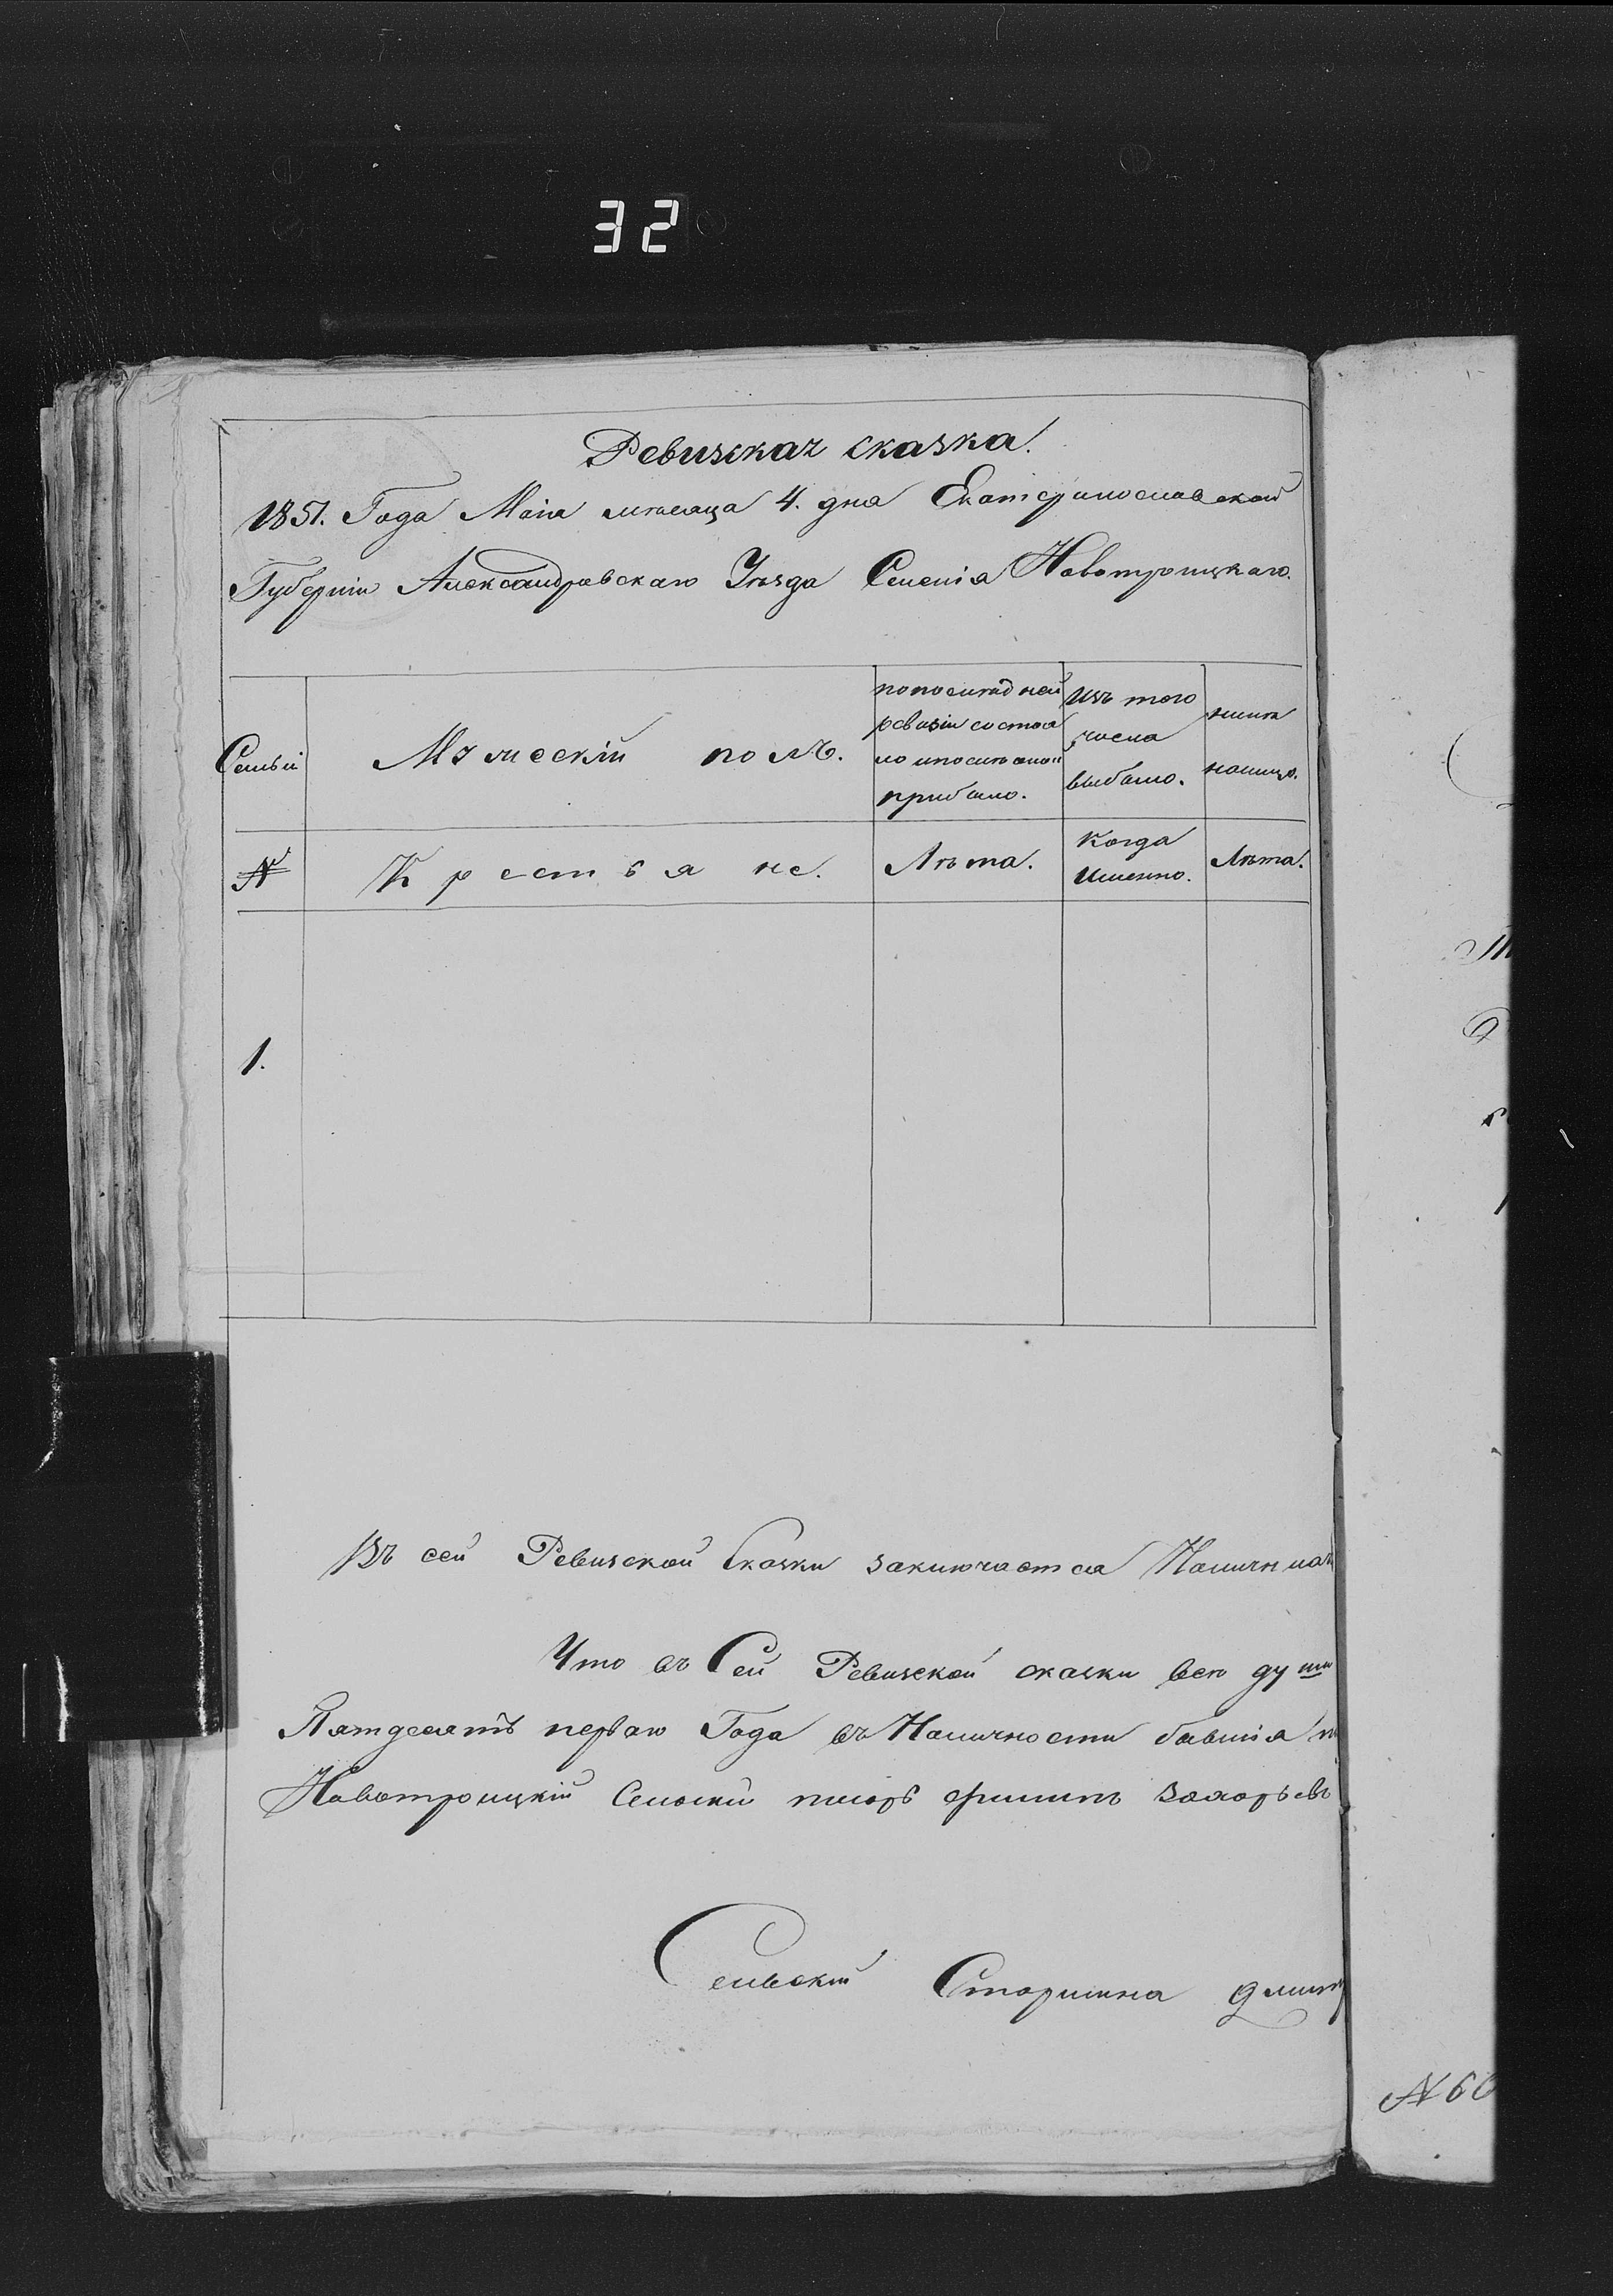 32
Ревизская сказка.
1851. Года Маiя мѣсяца 4. дня Екатеринославской
Губернiи Александровскаго Уѣзда Селенiя Новотроицкаго.
Семьи
Мужескiй полъ.
по последней
ревизiи состоя
ло и после оной
прибыло.
Изъ того
числа
выбыло.
ныне
налицо.
№
Крестьяне.
Лѣта.
Когда
Именно.
Лѣта.
1.
Въ сей Ревизской Сказки заключается Наличная
Что въ Сей Ревизской сказки все души
Пятдесятъ перваго Года въ Наличности бывшiя
Новотроицкiй Сельскiй писарь Филипъ Захарьевъ
Сельскiй Старшина Дмит
№ 60